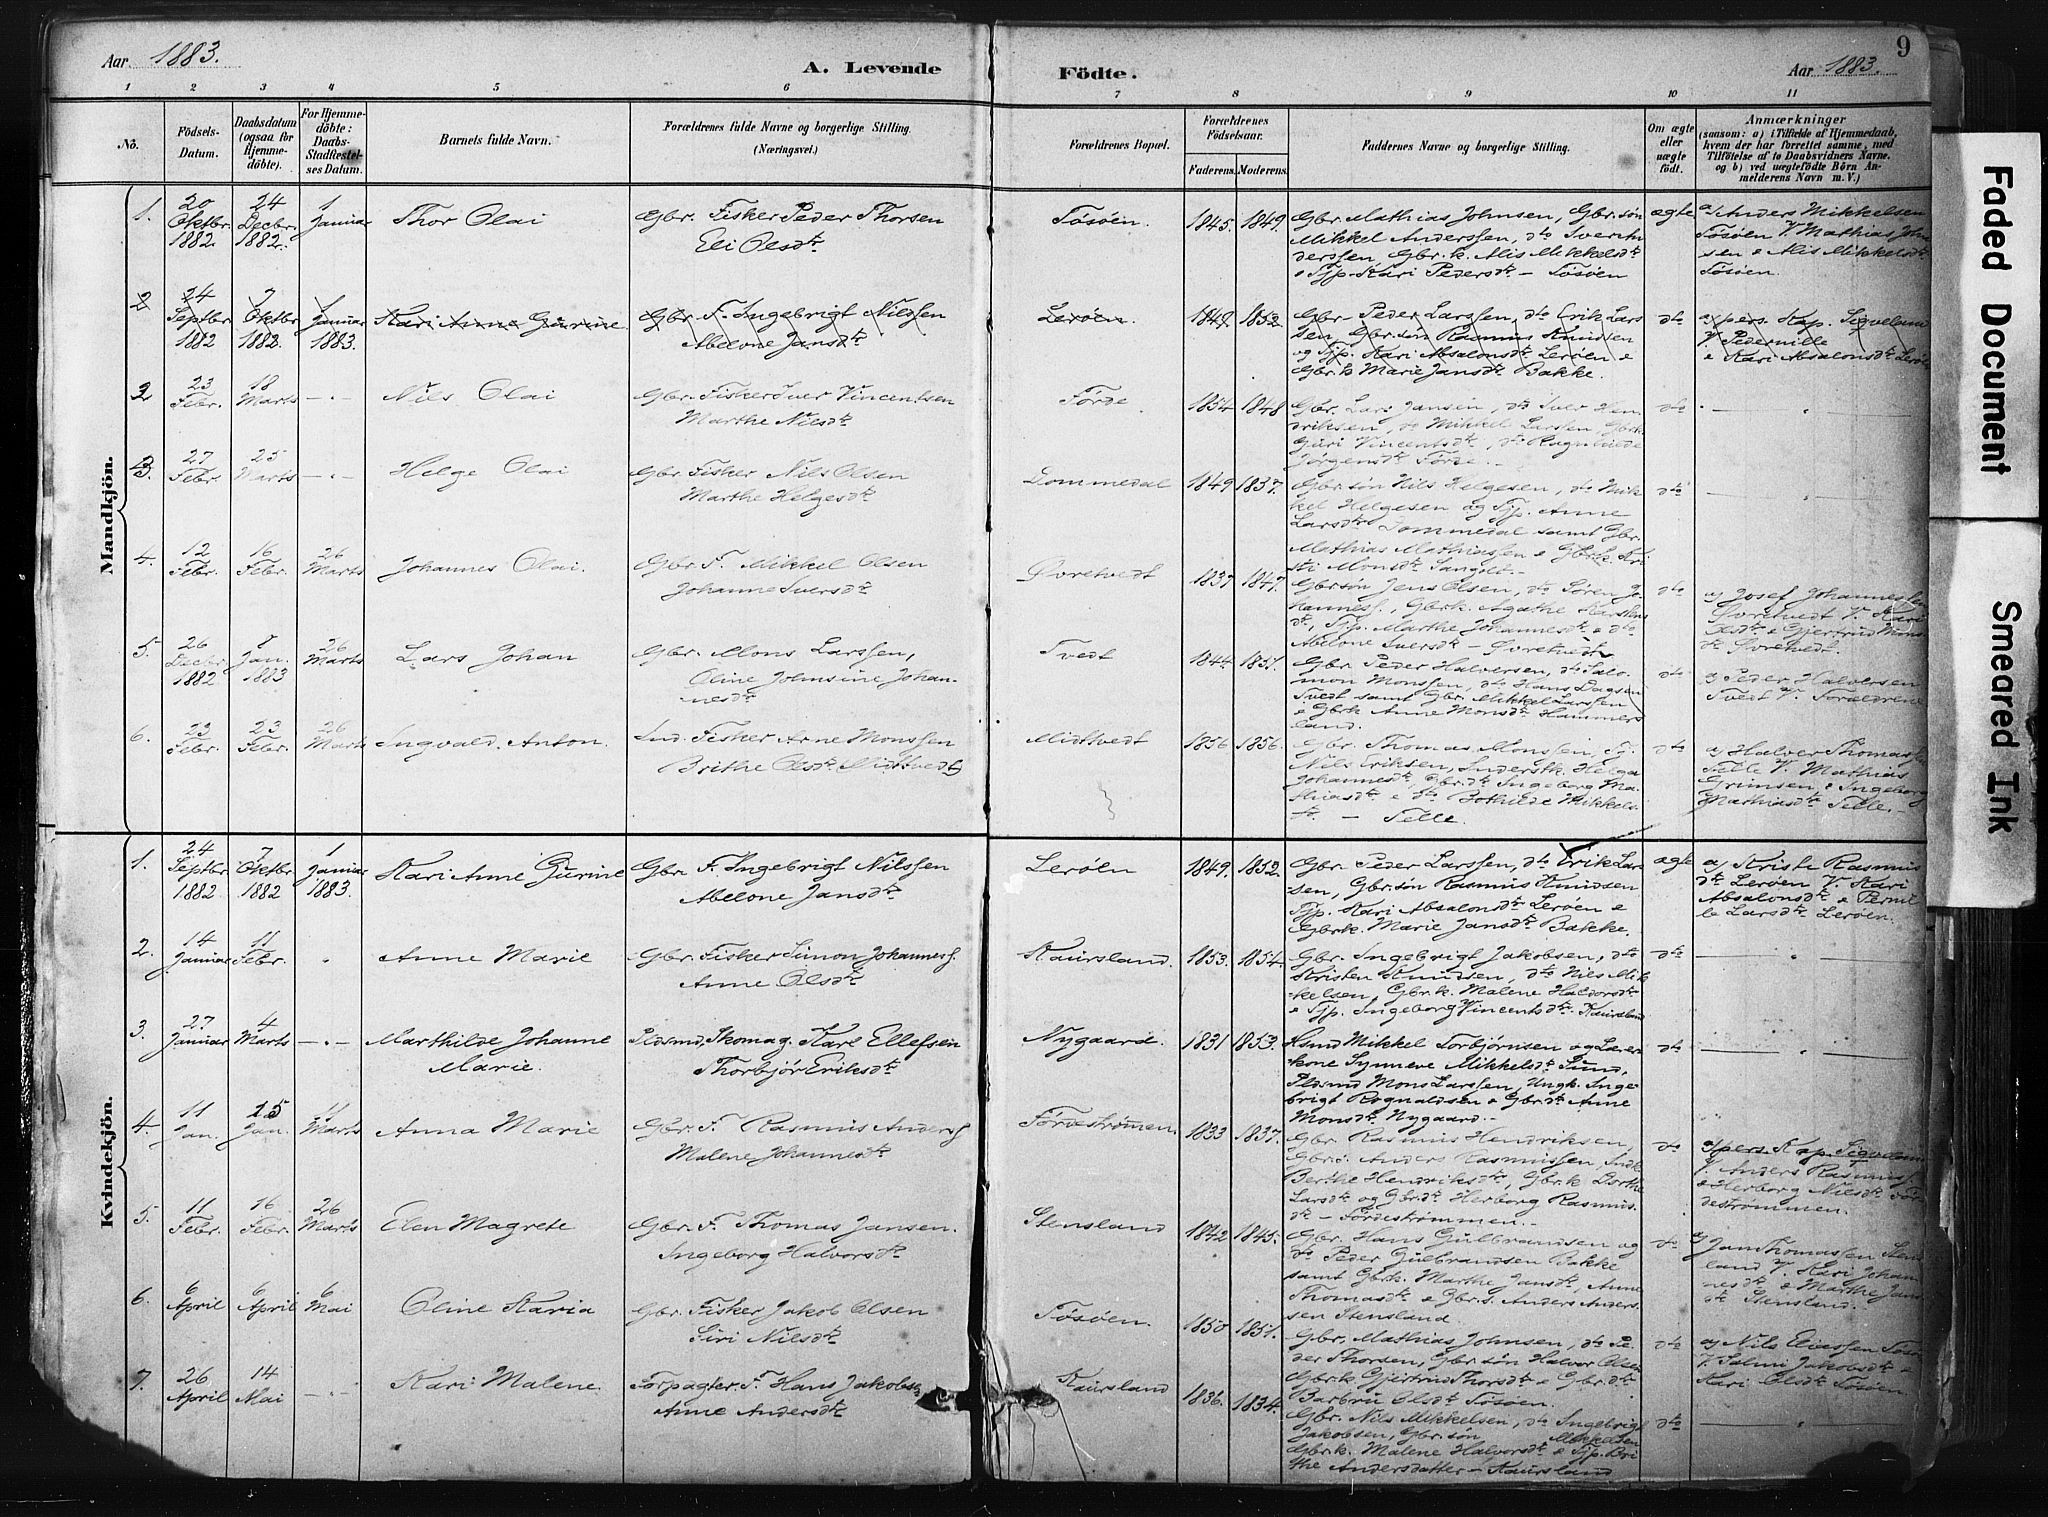 Aar 1883.
A. Levende Födte.
Aar 1883.
9
1 2 3 4 5 6 7 8 9 10 11
No.
Födsels-
Datum.
Daabsdatum
(ogsaa for
Hjemme-
döbte).
For Hjemme-
döbte:
Daabs-
Stadfæstel-
ses Datum.
Barnets fulde Navn.
Forældrenes fulde Navne og borgerlige Stilling.
(Næringsvei.)
Forældrenes Bopæl.
Forældrenes
Födselsaar.
Faderens. Moderens.
Faddernes Navne og borgerlige Stilling.
Om ægte
eller
uægte
født.
Anmærkninger
(saasom: a) i Tilfælde af Hjemmedaab,
hvem der har forrettet samme, med
Tilföielse af to Daabsvidners Navne.
og b) ved uægtefödte Börn An-
melderens Navn m. V.)
Mandkjön.
1.
20 Oktbr. 1882
24 Decbr. 1882.
1 Januar
Thor Olai
Gbr. Fisker Peder Thorsen
Eli Olsdtr
Tösöen.
1845. 1849.
Gbr. Mathias Johnsen, Gbr.søn
Mikkel Anderssen, dto Iver An
derssen, Gbr.k. Alis Mikkelsdtr
& Tjp. Kari Pedersdtr – Tösöen
ægte
a) Anders Mikkelsen
Tösöen V. Mathias John
sen & Alis Mikkelsdtr
Tösöen.
2
24 Septbr. 1882
7 Oktbr. 1882.
1 Januar 1883.
Kari Anne Gurine.
Gbr. F. Ingebrigt Nilssen
Abelone Jansdtr
Leröen.
1849. 1852.
Gbr. Peder Larssen, dto Erik Lars
sen Gbr.søn Rasmus Knudsen
og Tjp. Kari Absalonsdtr Leröen &
Gbr.k Marie Jansdtr Bakke.
dto
a) pers. Kap. Sigveland
V. Pernille
& Kari Absalonsdtr Leröe
2
23 Febr.
18 Marts
Nils Olai
Gbr. Fisker Iver Vincentsen
Marthe Nilsdtr
Förde.
1854 1848
Gbr. Lars Jansen, dto Iver Hen
driksen, do Mikkel Larsen, Gbr.k
Guri Vincentsdtr, dto Ragnhilde
Jörgensdtr Förde.
dto
3.
27 Febr.
25 Marts
Helge Olai
Gbr. Fisker Nils Olsen
Marthe Helgesdtr
Dommedal
1849 1837.
Gbr.søn Nils Helgesen, dto Mik
kel Helgesen og Tjp. Anne
Larsdtr Dommedal samt Gbr.
Mathias Mathiassen & Gbr.k. Kri
sti Monsdtr
dto
4.
12 Febr.
16 Febr.
26 Marts
Johannes Olai.
Gbr. F. Mikkel Olsen
Johanne Iversdtr
Øvretvedt
1837 1847.
Gbr.søn Jens Olsen, dto Søren Jo
hanness., Gbr.k. Agathe Karlsens
dtr, Tjp. Marthe Johannesdtr & dto
Abelone Iversdtr – Øvretvedt
dto
a) Josef Johannessen
Øvretvedt V. Kari
Olsdtr & Gjertrud Mons
dtr Øvretvedt.
5.
26 Decbr. 1882
8 Jan. 1883
26 Marts
Lars Johan
Gbr. Mons Larssen,
Oline Johnsine Johan-
nesdtr
Tvedt
1844. 1851.
Gbr. Peder Halversen, dto Salo
mon Monssen, dto Hans Dagsen
Tvedt samt Gbr. Mikkel Larssen
& Gbr.k Anne Monsdtr Hammers
land.
dto
a) Peder Halversen
Tvedt V. Forældrene
6.
23 Febr.
23 Febr.
26 Marts
Ingvald Anton.
Ind. Fisker Arne Monssen
Brithe Olsdtr Midttvedt
Midttvedt
1856 1856.
Gbr. Thomas Monssen, F.
Nils Eriksen, Inderstk. Helga
Johannesdtr, Gbr.dtr Ingeborg Ma
thiasdtr & dto Bothilde Mikkels
dtr – Telle.
dto
a) Halver Thomassen
Telle V. Mathias
Grimsen, & Ingeborg
Mathiasdtr Telle.
Kvindekjön.
1.
24 Septbr. 1882
7 Oktbr. 1882
1 Januar 1883.
Kari Anne Gurine
Gbr. F. Ingebrigt Nilssen
Abelone Jansdtr
Leröen
1849. 1852.
Gbr. Peder Larssen, dto Erik Lar
sen, Gbr.søn Rasmus Knudsen
Tjp. Kari Absalonsdtr Leröen &
Gbr.k. Marie Jansdtr Bakke.
ægte
a) Kristi Rasmus
dtr Leröen V. Kari
Absalonsdtr & Pernil
le Larsdtr Leröen.
2.
14 Januar
11 Febr.
Anne Marie
Gbr. Fisker Simon Johanness.
Anne Olsdtr
Kaursland.
1853. 1854.
Gbr. Ingebrigt Jakobsen, dto
Kristen Knudsen, dto Nils Mik
kelsen, Gbr.k. Malene Haldorsdtr
& Tjp. Ingeborg Vincentsdtr Kaursland
dto
3.
27 Januar
4 Marts
Marthilde Johanne
Marie.
Pldsmd, Skomag. Karl Ellefsen
Thorbjör Eriksdtr
Nygaard.
1831 1853.
Hsmd Mikkel Torbjørnsen og Lærer
kone Synneve Mikkelsdtr Sund,
Pldsmd Mons Larssen, Ungk. Inge
brigt Rognaldsen & Gbr.dtr Anne
Monsdtr Nygaard.
dto
4.
11 Jan.
25 Jan.
11 Marts
Anna Marie
Gbr. F. Rasmus Anderss
Malene Johannesdtr
Fördeströmmen.
1833 1837.
Gbr. Rasmus Hendriksen,
Gbr.s. Anders Rasmussen, Indk
Berthe Hendriksdtr, Gbr.k Dorthe
Larsdtr og Gbr.dtr Herborg Rasmus
dtr – Fördeströmmen.
dto
a) pers. Kap. Sigveland
V. Anders Rasmuss.
& Herborg Nilsdtr För
deströmmen.
5.
11 Febr.
16 Febr.
26 Marts
Elen Magrete
Gbr. F. Thomas Jansen.
Ingeborg Halvorsdtr
Stensland
1842 1845.
Gbr. Hans Gulbrandsen og
dto Peder Gulbrandsen Bakke
samt Gbr.k. Marthe Jansdtr, Anne
Thomasdtr & Gbr.s. Anders Anders
sen Stensland.
dto
a) Jan Thomassen Stens
land V. Kari Johan
nesdtr & Marthe Jans
dtr Stensland.
6.
6 April
6 April
6 Mai
Oline Karia
Gbr. Fisker Jakob Olsen
Siri Nilsdtr
Tösöen.
1850 1851.
Gbr. Mathias Johnsen, dto Pe
der Thorsen, Gbr.søn Halvor Olsen
Gbr.k. Gjertrud Thorsdtr & Gbr.dtr
Barbru Olsdtr Tösöen.
dto
a) Nils Elvessen Tösö
V. Salmi Jakobsdtr &
Kari Olsdtr Tösöen.
7.
26 April
14 Mai
Kari Malene.
Forpagter F. Hans Jakobsen
Anne Andersdtr
Kaursland
1836. 1834.
Gbr. Nils Mikkelsen, dto Ingebrigt
Jakobsen, Gbr.søn Mikkelsen
Gbr.k. Malene Halvorsdtr & Tjp. Bri
the Andersdatter – Kaursland
dto
Faded Document
Smeared Ink